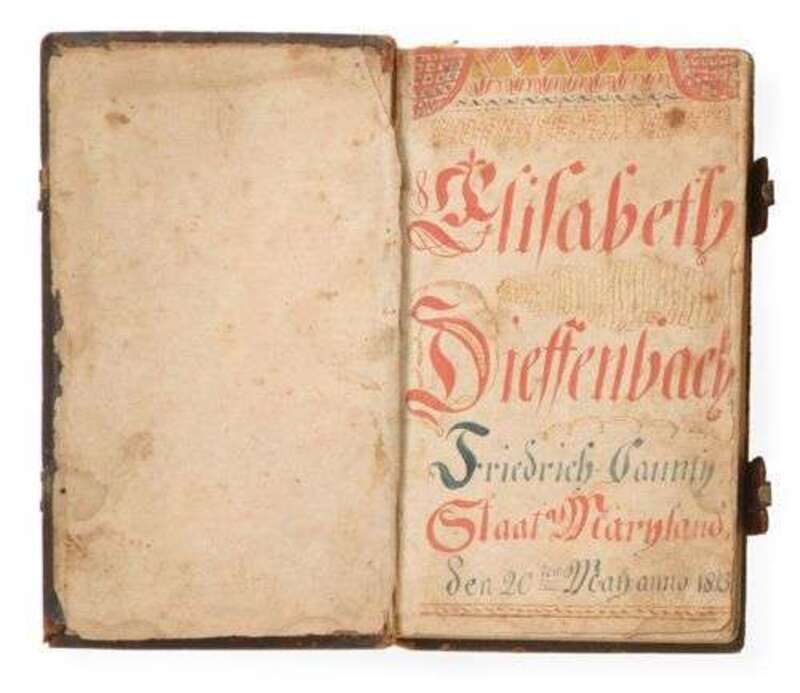 Elisabeth
Dieffenbach
Friedrich Caunty
Staat Maryland
den 20ten May anno